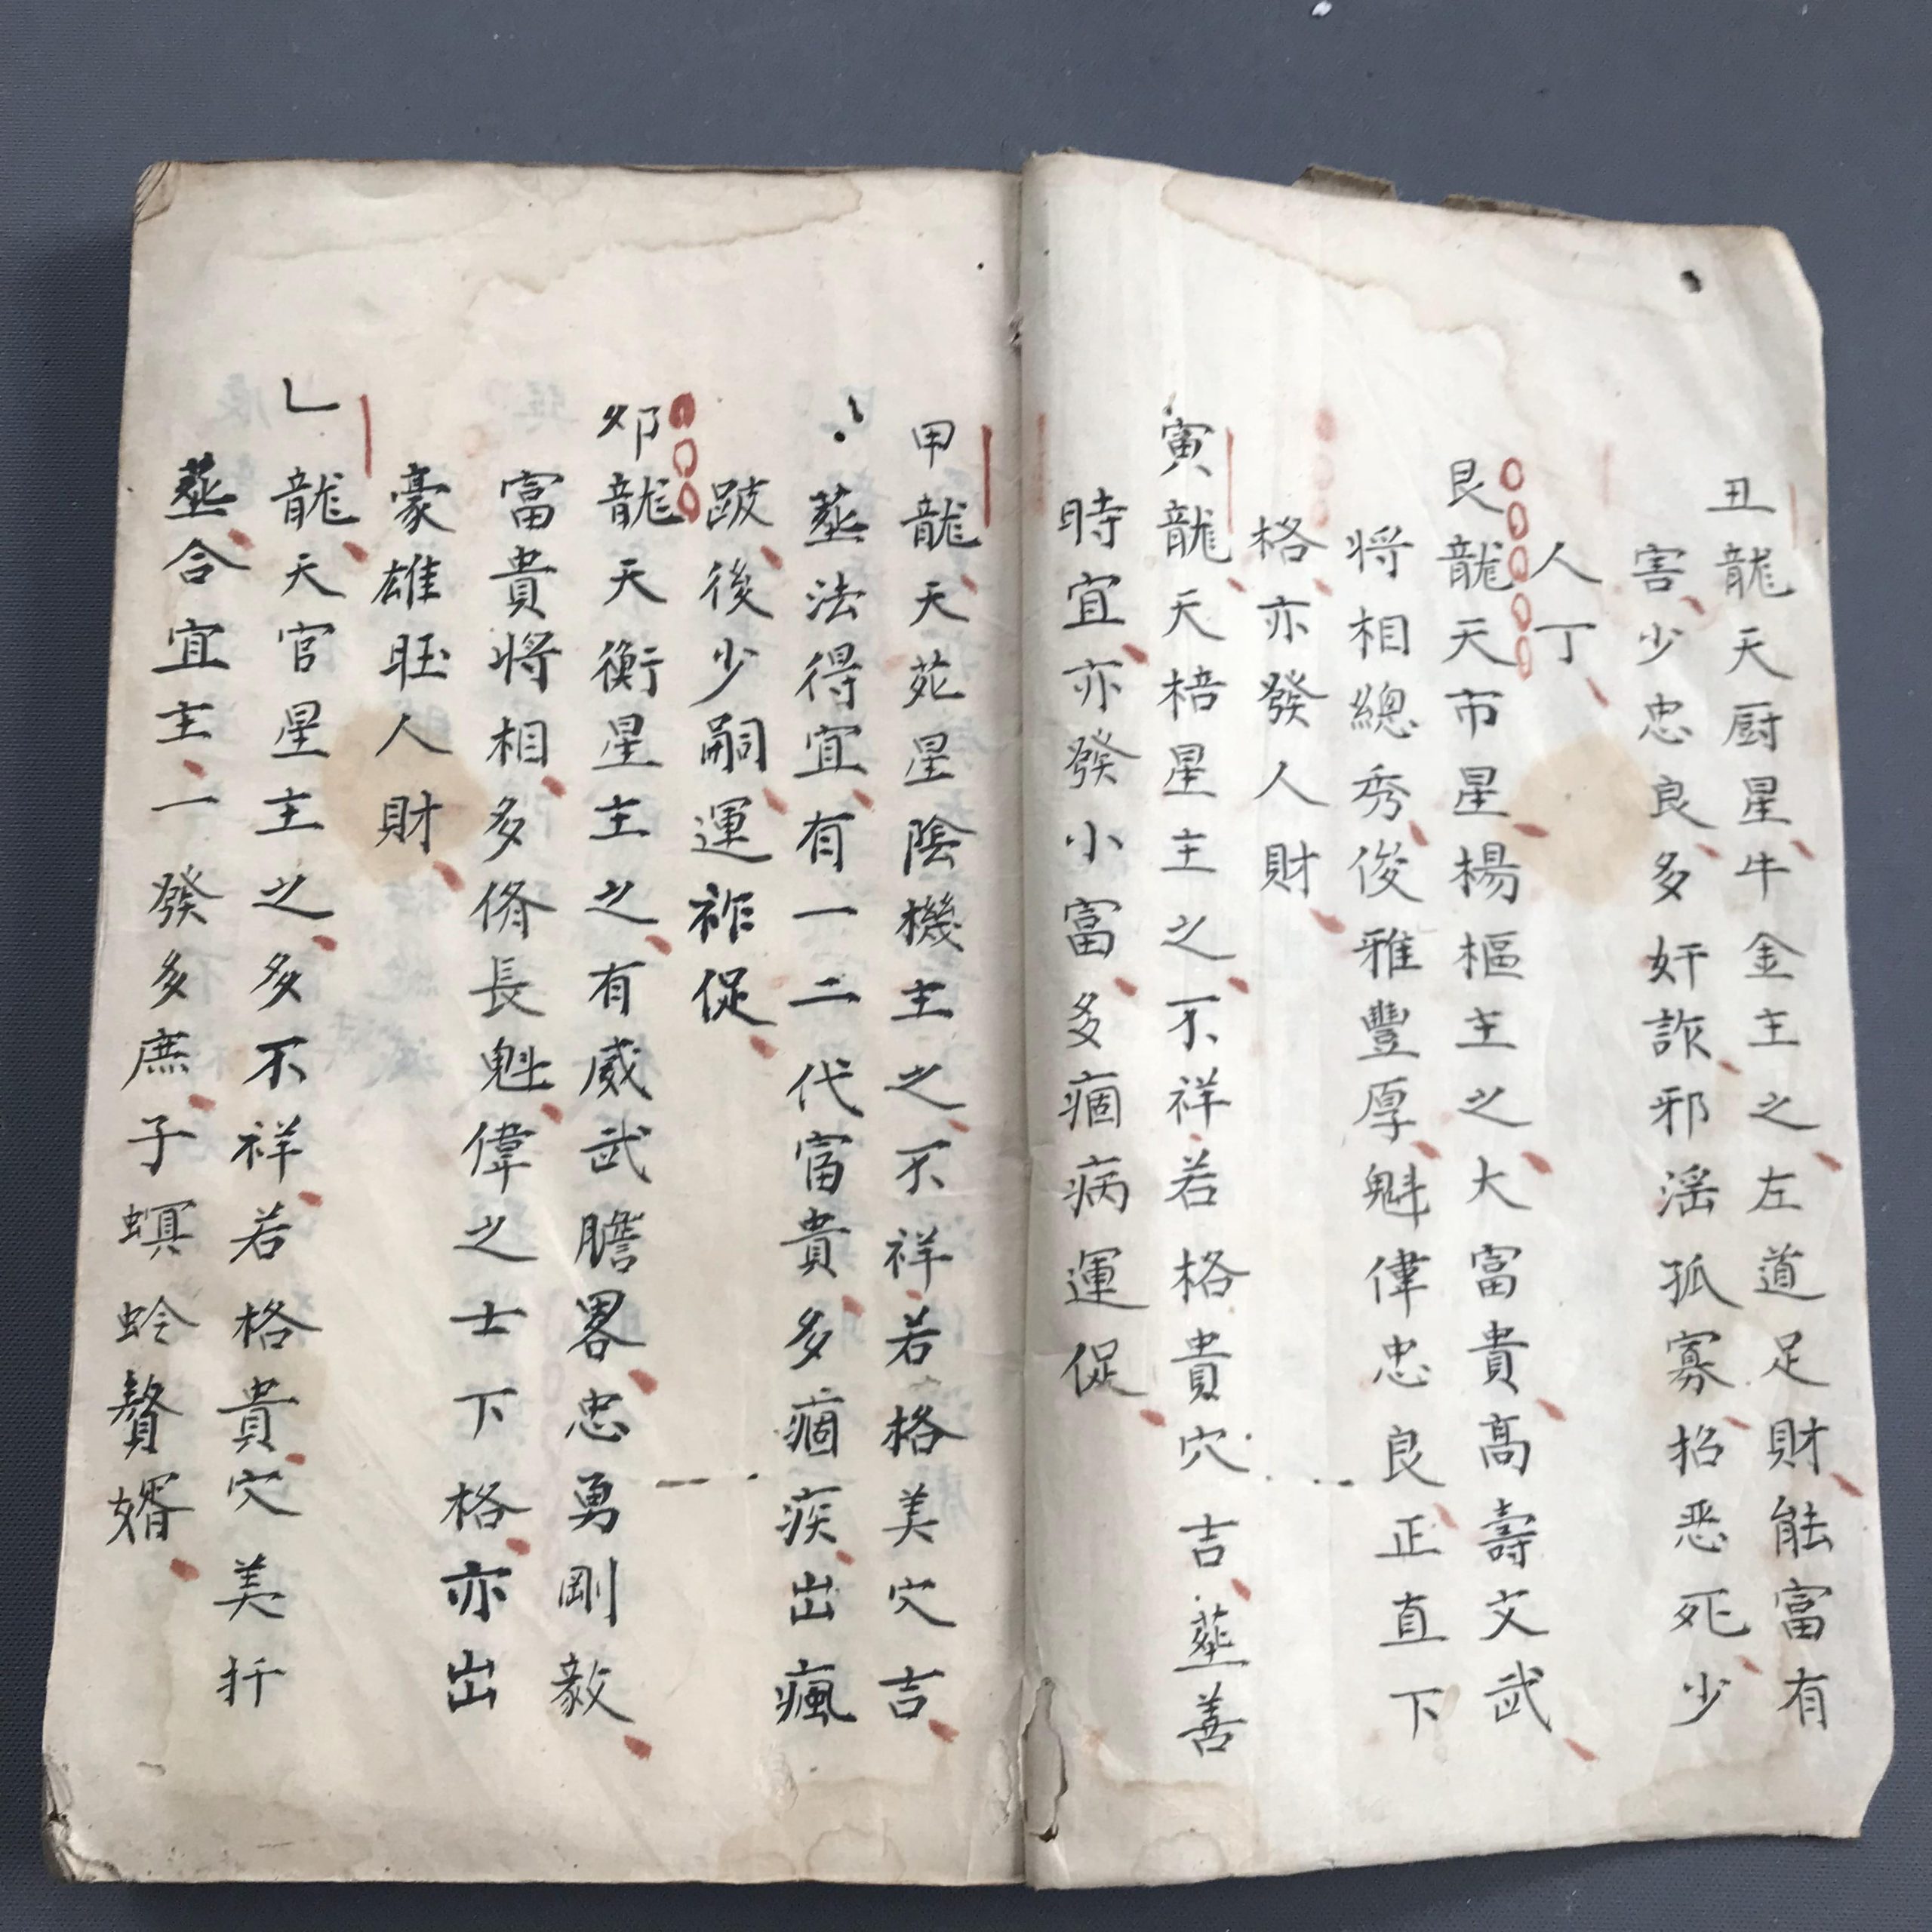 丑龍天厨星牛金主之左道足財能富有
害少忠良多奸詐邪淫孤寡招恶死少
人丁
艮龍天市星楊樞主之大富貴高壽文武
将相總秀俊雅豐厚魁偉忠良正直下
格亦發人財
寅龍天棓星主之不祥若格貴穴吉塟善
時宜亦發小富多痼病運促
甲龍天苑星陰機主之不祥若格美穴吉
塟法得宜有一二代富貴多痼疾出瘋
跛後少嗣運祚促
夘龍天衡星主之有威武膽畧忠勇剛毅
富貴将相多脩長魁偉之士下格亦出
豪雄旺人財
乙龍天官星主之多不祥若格貴穴美扦
塟合宜主一發多庶子螟蛉贅婿